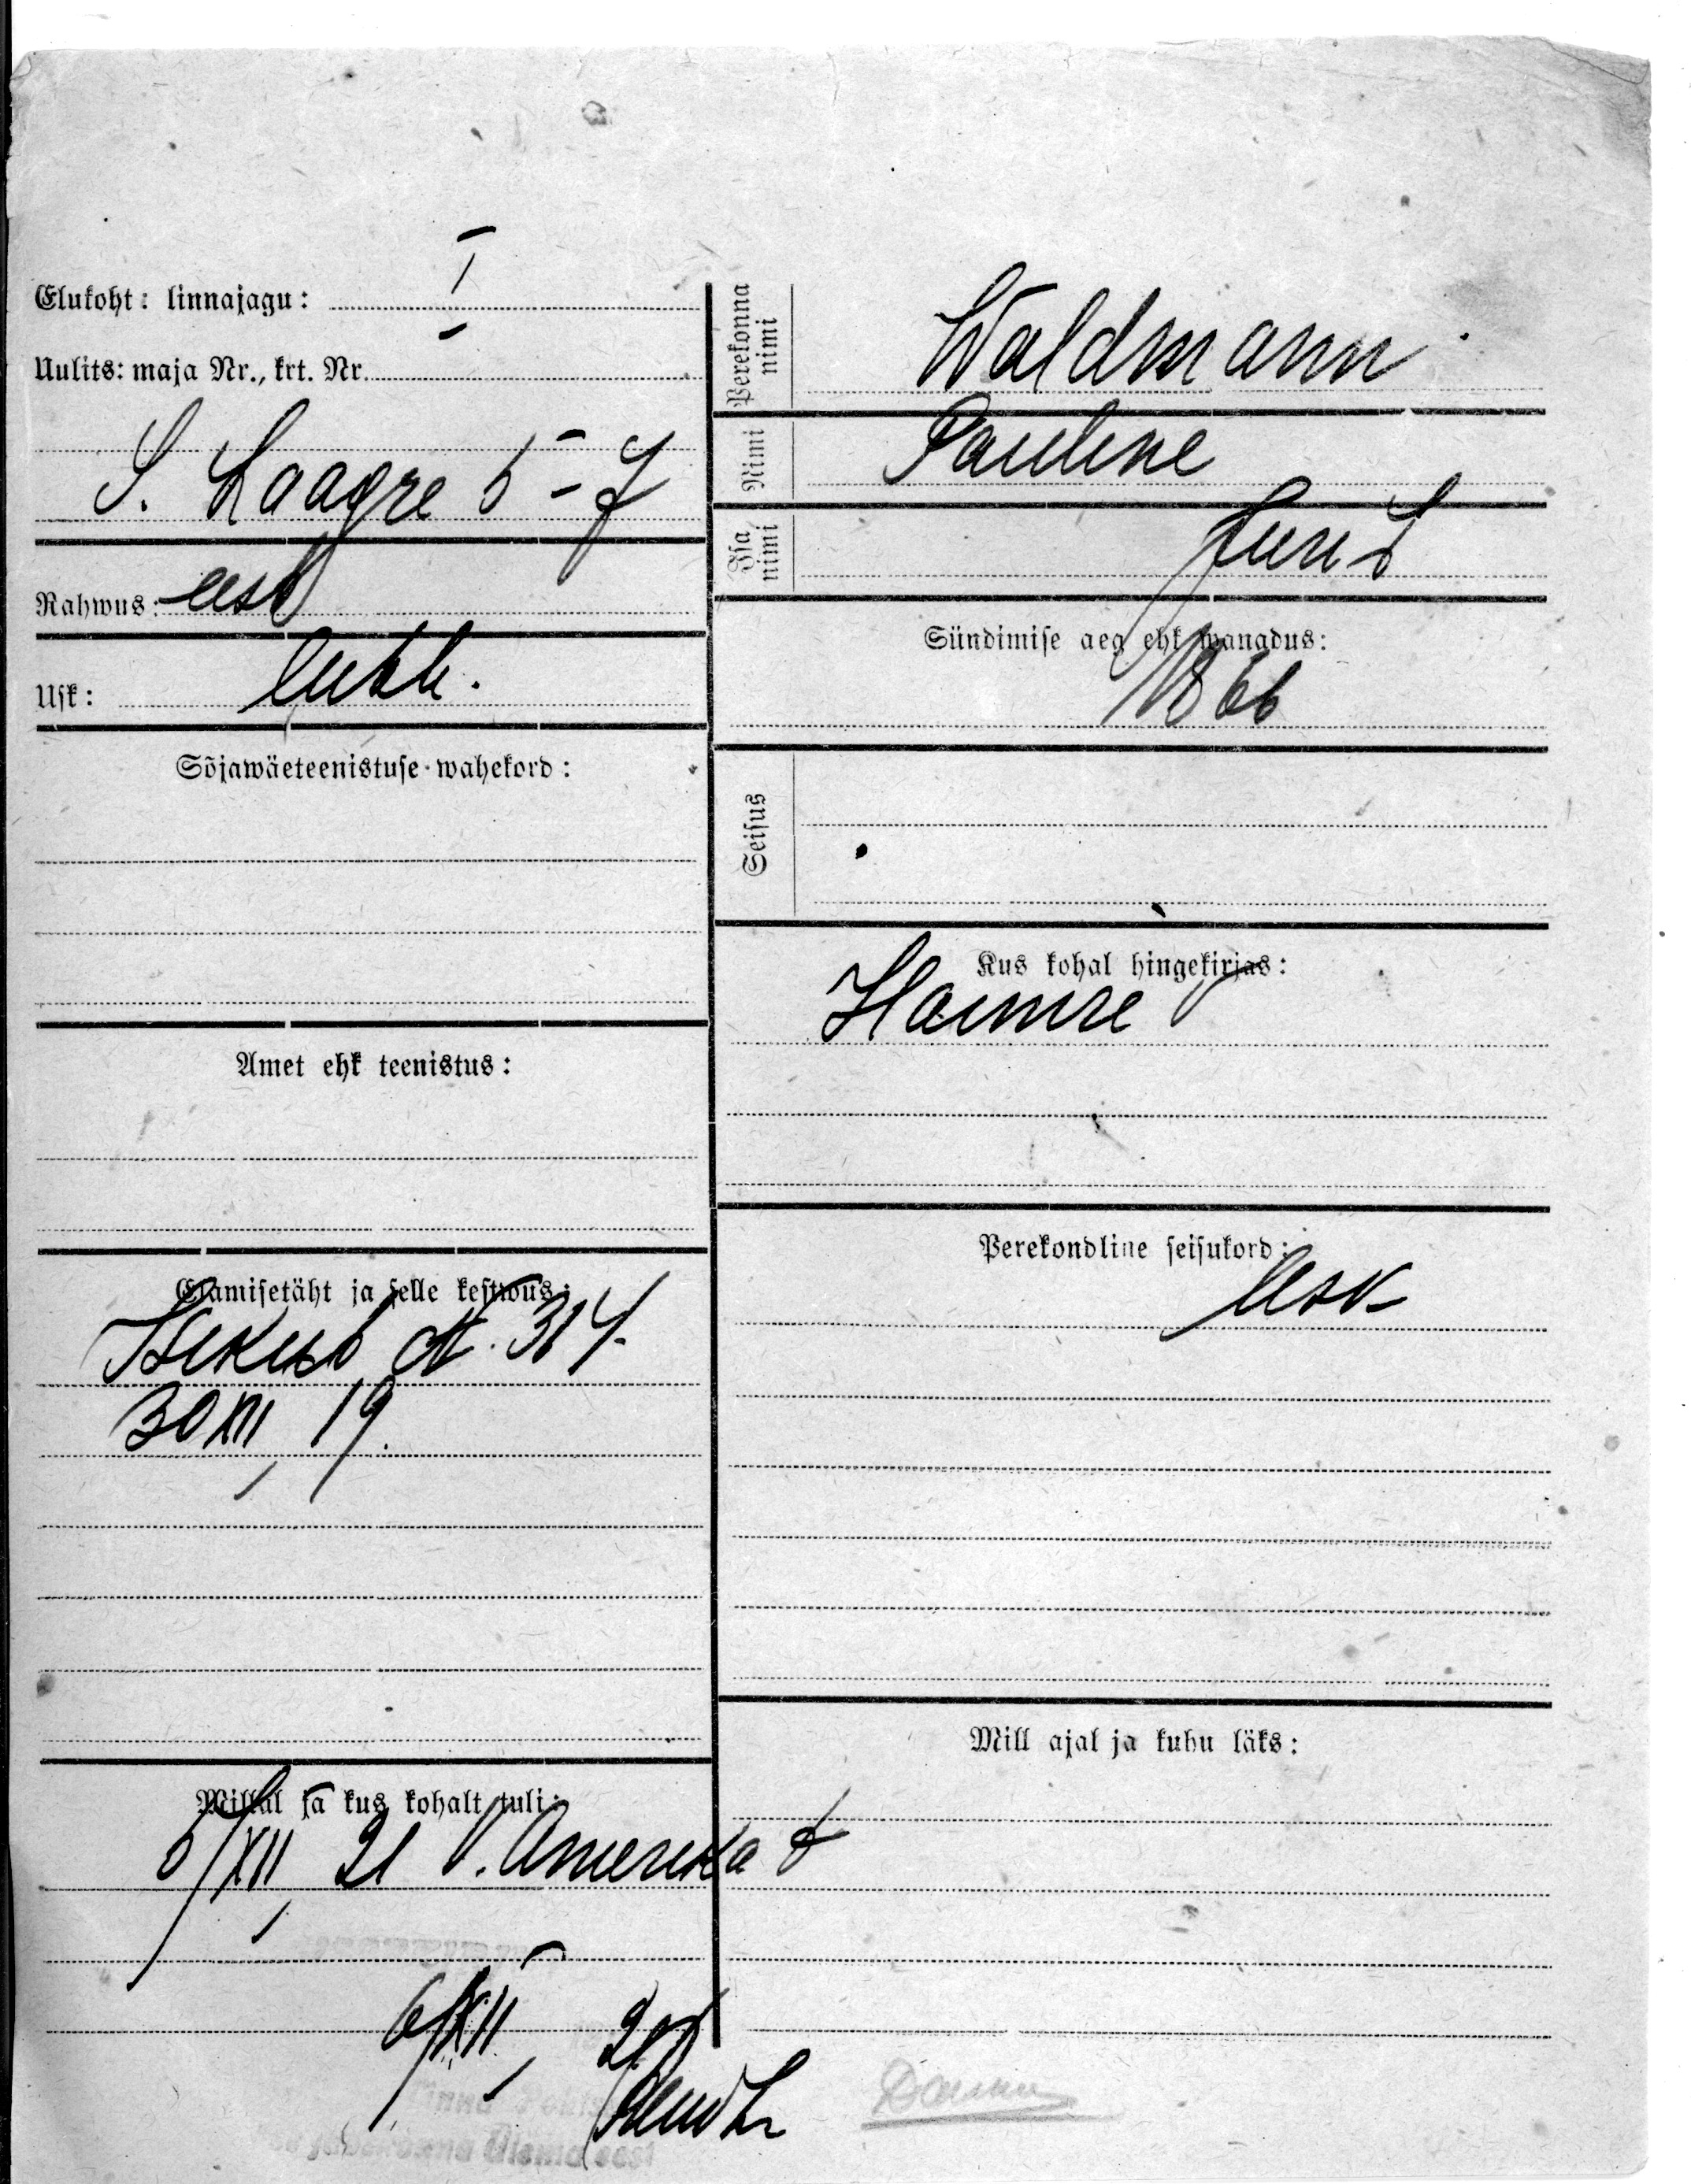 Elukoht: linnajagu: I
Uulits: maja Nr., krt. Nr.
S. Laagre 5-7
Rahwus: eest
Usk: luth.
Sõjawäeteenistuse-wahekord:
Amet ehk teenistus:
Elamisetäht ja selle kestwus:
Isikut N. 314
30 XII 19.
Millal ja kus kohalt tuli:
5/XII 21 V. Amerikast
6/XII 21
Perekonna nimi
Waldmann
Nimi
Pauline
Isa nimi
Juri t.
Sündimise aeg ehk wanadus:
1866
Seisus
Kus kohal hingekirjas:
Haimre
Perekondline seisukord:
lesk
Mill ajal ja kuhu läks: